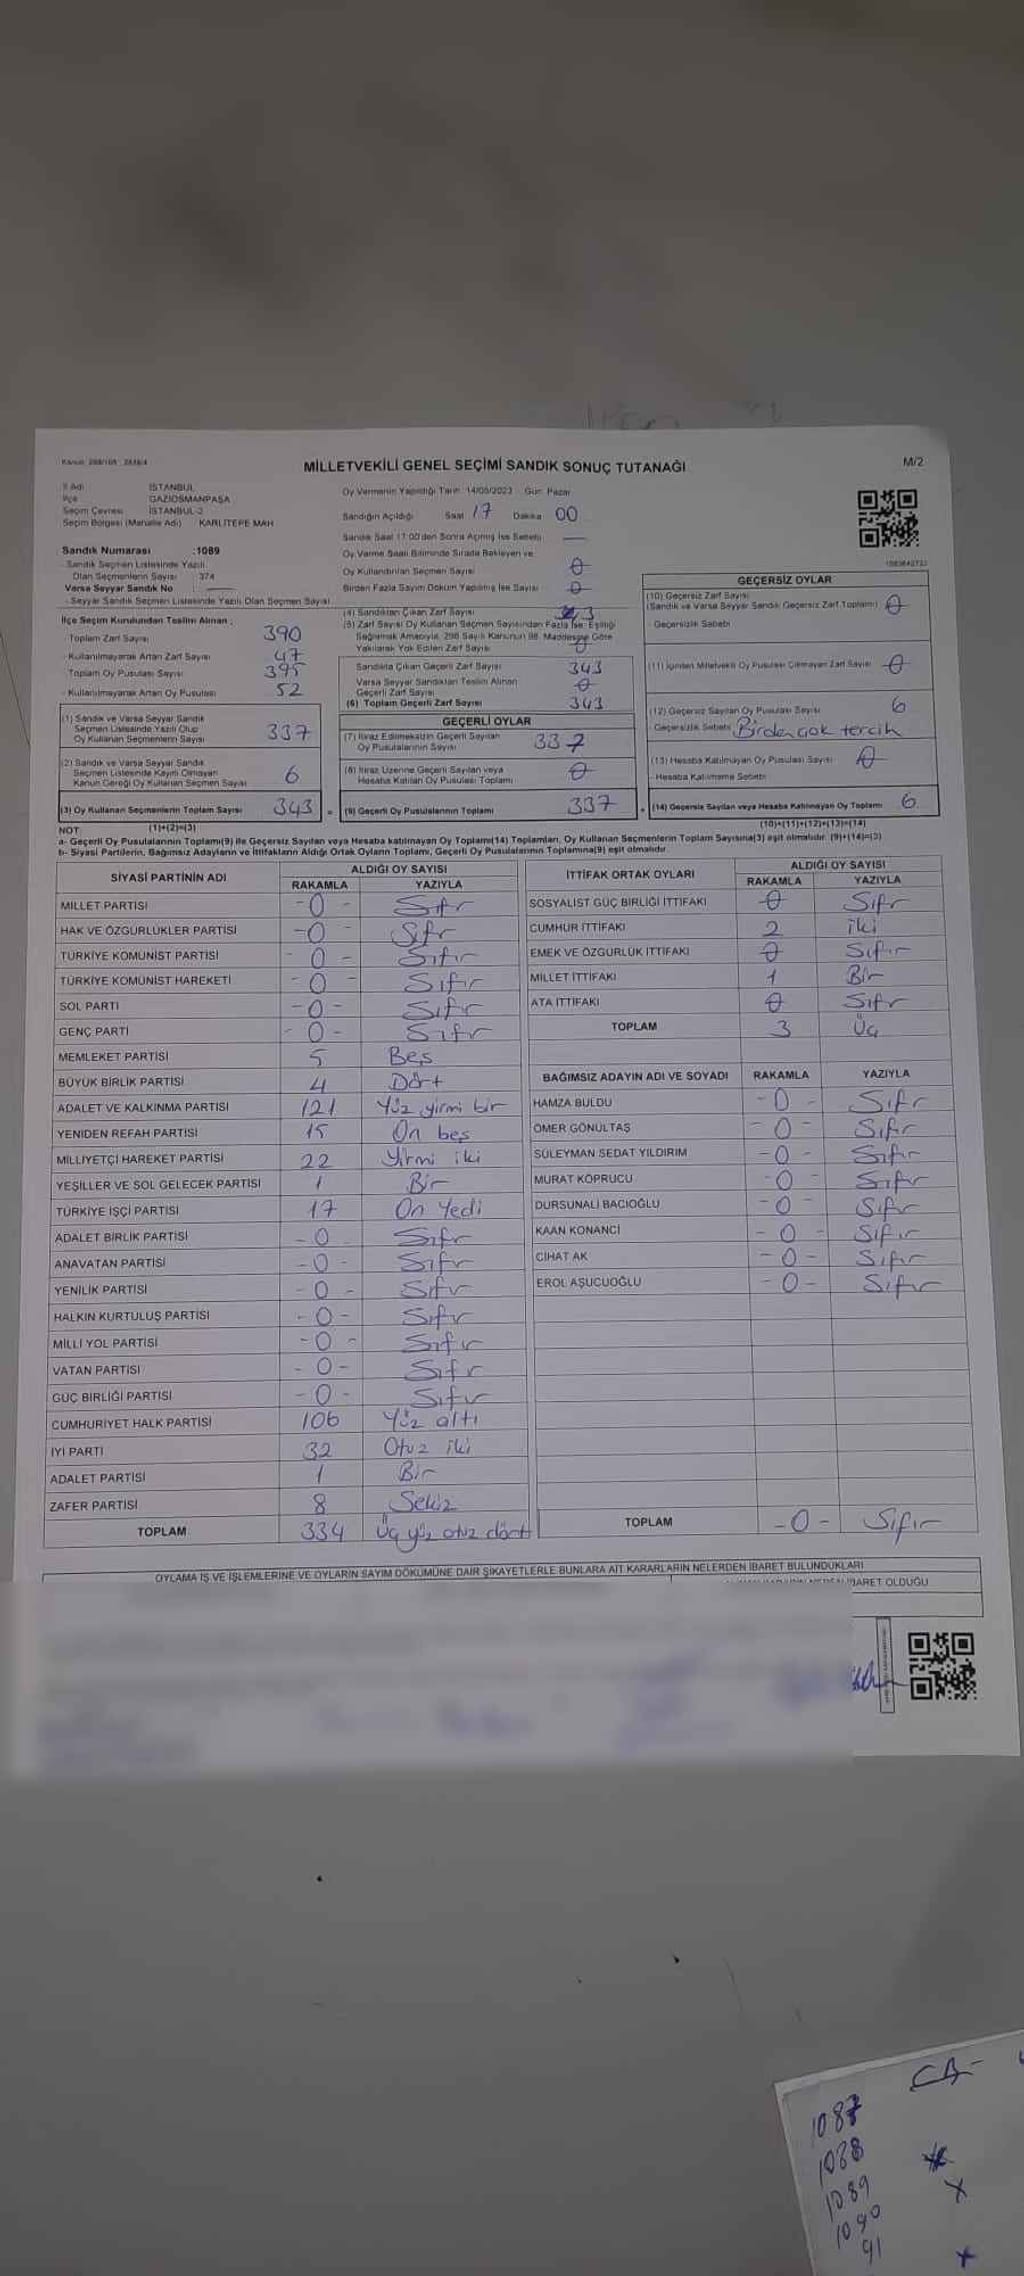 MİLLETVEKİLİ GENEL SEÇİMİ SANDIK SONUÇ TUTANAĞI
M/2
İl Adı İSTANBUL
İlçe GAZİOSMANPAŞA
Seçim Çevresi İSTANBUL-2
Seçim Bölgesi (Mahalle Adı) KARLITEPE MAH
Sandık Numarası :1089
Sandık Seçmen Listesinde Yazılı
Olan Seçmenlerin Sayısı 374
Varsa Seyyar Sandık No
- Seyyar Sandık Seçmen Listesinde Yazılı Olan Seçmen Sayısı
Oy Vermenin Yapıldığı Tarih 14/05/2023 Gün Pazar
Sandığın Açıldığı Saat 17 Dakika 00
Sandık Saat 17:00'den Sonra Açılmış İse Sebebi —
Oy Verme Saati Bitiminde Sırada Bekleyen ve
Oy Kullandırılan Seçmen Sayısı 0
Birden Fazla Sayım Döküm Yapılmış İse Sayısı 0
İlçe Seçim Kurulundan Teslim Alınan :
- Toplam Zarf Sayısı 390
- Kullanılmayarak Artan Zarf Sayısı 47
- Toplam Oy Pusulası Sayısı 395
- Kullanılmayarak Artan Oy Pusulası 52
(1) Sandık ve Varsa Seyyar Sandık
Seçmen Listesinde Yazılı Olup
Oy Kullanan Seçmenlerin Sayısı 337
(2) Sandık ve Varsa Seyyar Sandık
Seçmen Listesinde Kayıtlı Olmayan
Kanun Gereği Oy Kullanan Seçmen Sayısı 6
(3) Oy Kullanan Seçmenlerin Toplam Sayısı 343
(1)+(2)=(3)
(4) Sandıktan Çıkan Zarf Sayısı
(5) Zarf Sayısı Oy Kullanan Seçmen Sayısından Fazla İse, Eşitliği
Sağlamak Amacıyla, 298 Sayılı Kanunun 98. Maddesine Göre
Yakılarak Yok Edilen Zarf Sayısı 0
Sandıkta Çıkan Geçerli Zarf Sayısı 343
Varsa Seyyar Sandıktan Teslim Alınan
Geçerli Zarf Sayısı 0
(6) Toplam Geçerli Zarf Sayısı 343
GEÇERLİ OYLAR
(7) İtiraz Edilmeksizin Geçerli Sayılan
Oy Pusulalarının Sayısı 337
(8) İtiraz Üzerine Geçerli Sayılan veya
Hesaba Katılan Oy Pusulası Toplamı 0
(9) Geçerli Oy Pusulalarının Toplamı 337
GEÇERSİZ OYLAR
(10) Geçersiz Zarf Sayısı
(Sandık ve Varsa Seyyar Sandık Geçersiz Zarf Toplamı) 0
- Geçersizlik Sebebi
(11) İçinden Milletvekili Oy Pusulası Çıkmayan Zarf Sayısı 0
(12) Geçersiz Sayılan Oy Pusulası Sayısı 6
Geçersizlik Sebebi Birden çok tercih
(13) Hesaba Katılmayan Oy Pusulası Sayısı 0
- Hesaba Katılmama Sebebi
(14) Geçersiz Sayılan veya Hesaba Katılmayan Oy Toplamı 6
(10)+(11)+(12)+(13)=(14)
NOT:
a- Geçerli Oy Pusulalarının Toplamı(9) ile Geçersiz Sayılan veya Hesaba katılmayan Oy Toplamı(14) Toplamları, Oy Kullanan Seçmenlerin Toplam Sayısına(3) eşit olmalıdır. (9)+(14)=(3)
b- Siyasi Partilerin, Bağımsız Adayların ve İttifakların Aldığı Ortak Oyların Toplamı, Geçerli Oy Pusulalarının Toplamına(9) eşit olmalıdır.
SİYASİ PARTİNİN ADI ALDIĞI OY SAYISI
RAKAMLA YAZIYLA
MİLLET PARTİSİ -0- Sıfır
HAK VE ÖZGÜRLÜKLER PARTİSİ -0- Sıfır
TÜRKİYE KOMÜNİST PARTİSİ -0- Sıfır
TÜRKİYE KOMÜNİST HAREKETİ -0- Sıfır
SOL PARTİ -0- Sıfır
GENÇ PARTİ -0- Sıfır
MEMLEKET PARTİSİ 5 Beş
BÜYÜK BİRLİK PARTİSİ 4 Dört
ADALET VE KALKINMA PARTİSİ 121 Yüz yirmi bir
YENİDEN REFAH PARTİSİ 15 On beş
MİLLİYETÇİ HAREKET PARTİSİ 22 Yirmi iki
YEŞİLLER VE SOL GELECEK PARTİSİ 1 Bir
TÜRKİYE İŞÇİ PARTİSİ 17 On Yedi
ADALET BİRLİK PARTİSİ -0- Sıfır
ANAVATAN PARTİSİ -0- Sıfır
YENİLİK PARTİSİ -0- Sıfır
HALKIN KURTULUŞ PARTİSİ -0- Sıfır
MİLLİ YOL PARTİSİ -0- Sıfır
VATAN PARTİSİ -0- Sıfır
GÜÇ BİRLİĞİ PARTİSİ -0- Sıfır
CUMHURİYET HALK PARTİSİ 106 Yüz altı
İYİ PARTİ 32 Otuz iki
ADALET PARTİSİ 1 Bir
ZAFER PARTİSİ 8 Sekiz
TOPLAM 334 Üç yüz otuz dört
İTTİFAK ORTAK OYLARI ALDIĞI OY SAYISI
RAKAMLA YAZIYLA
SOSYALİST GÜÇ BİRLİĞİ İTTİFAKI 0 Sıfır
CUMHUR İTTİFAKI 2 iki
EMEK VE ÖZGÜRLÜK İTTİFAKI 0 Sıfır
MİLLET İTTİFAKI 1 Bir
ATA İTTİFAKI 0 Sıfır
TOPLAM 3 Üç
BAĞIMSIZ ADAYIN ADI VE SOYADI RAKAMLA YAZIYLA
HAMZA BULDU -0- Sıfır
ÖMER GÖNÜLTAŞ -0- Sıfır
SÜLEYMAN SEDAT YILDIRIM -0- Sıfır
MURAT KÖPRÜCÜ -0- Sıfır
DURSUNALİ BACIOĞLU -0- Sıfır
KAAN KONANCI -0- Sıfır
CİHAT AK -0- Sıfır
EROL AŞUCUOĞLU -0- Sıfır
TOPLAM -0- Sıfır
OYLAMA İŞ VE İŞLEMLERİNE VE OYLARIN SAYIM DÖKÜMÜNE DAİR ŞİKAYETLERLE BUNLARA AİT KARARLARIN NELERDEN İBARET BULUNDUKLARI
İBARET OLDUĞU
CB-
1087
1088
1089
1090
91